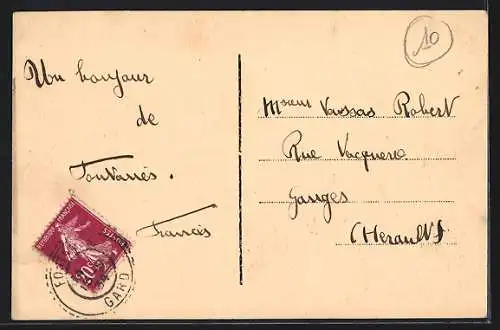 Un bonjour
de
Fontanès.
Francis
10
Msieur Vassas Robert
Rue Vacquerie
Ganges
(Herault)
REPUBLIQUE FRANCAISE
POSTES
20c
GARD